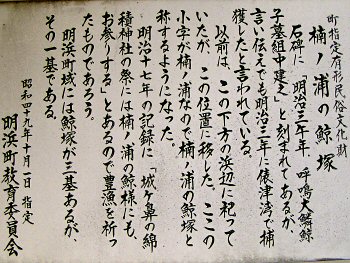 町指定有形民俗文化財
楠ノ浦の鯨塚
石碑に「明治三年午、呼鳴大鱗鯨
子墓組中建之」と刻まれてあるが、
言い伝えでも明治三年に俵津湾で捕
獲したと言われている。
以前は、この下方の浜辺に祀って
いたが、この位置に移した。ここの
小字が楠ノ浦なので楠ノ浦の鯨塚と
称するようになった。
明治十七年の記録に「城ヶ鼻の綿
積神社の祭には楠ノ浦の鯨様にも、
お参りする」とあるので豊漁を祈っ
たものであろう。
明浜町域には鯨塚が三基あるが、
その一基である。
昭和四十九年十月一日 指定
明浜町教育委員会